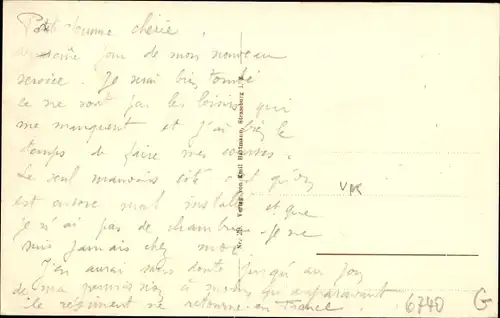 Petite femme chérie,
jour de mon nouveau
service. Je suis bien tombé
ce ne sont pas les loisirs qui
me manquent et j'ai le
temps de faire mes courses.
Le seul mauvais côté c'est qu'on
est encore mal installé et que
je n'ai pas de chambre. Je ne
suis jamais chez moi
J'en aurai sans doute jusqu'au jour
de ma permission à moins qu'auparavant
le régiment ne retourne en France.
Nr. 29. Verlag von Emil Hartmann, Strassburg i. E.
6740